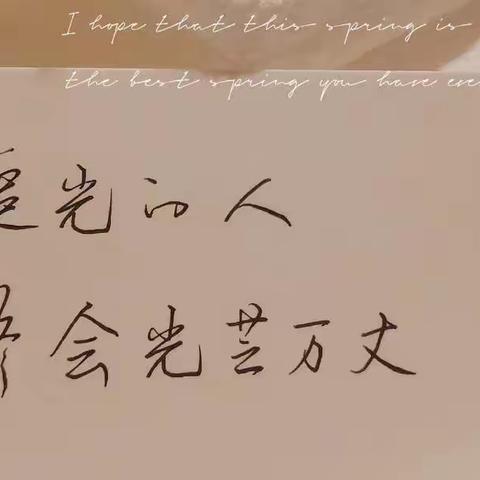 I hope that this spring is
the best spring you have
光的人
会光芒万丈